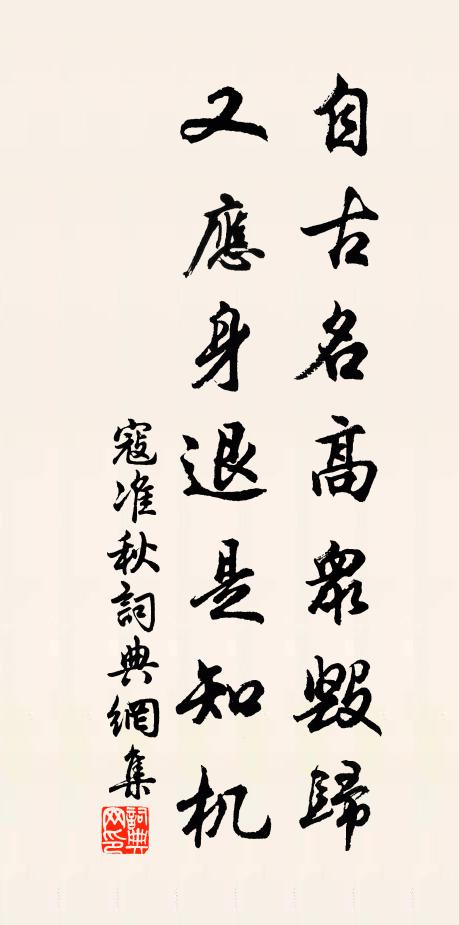 自古名高眾毀歸
又應身退是知机
寇准秋詞典網集
詞典网印